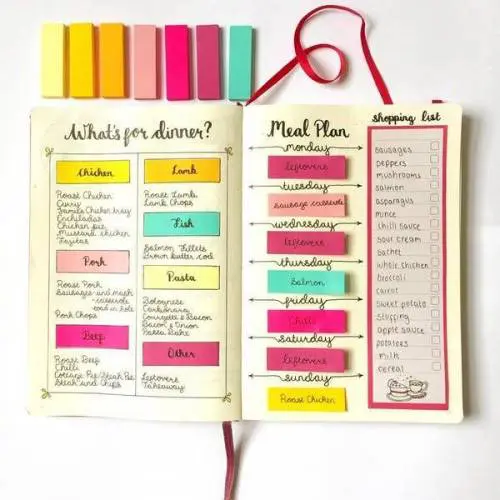 What's for dinner?
Chicken
Roast Chicken
Curry
Chicken tray
Enchiladas
Chicken pie
Mustard chicken
Fajitas
Pork
Roast Pork
Sausages and mash
- casserole
- toad in hole
Pork Chops
Beef
Roast Beef
Chilli
Cottage Pie/Steak Pie
Steak and Chips
Lamb
Roast Lamb
Lamb Chops
Fish
Salmon Fillets
Brown butter cod
Pasta
Bolognese
Carbonara
Courgette & Bacon
Bacon & Onion
Pasta Bake
Other
Leftovers
Takeaway
Meal Plan
monday
leftovers
tuesday
sausage casserole
wednesday
leftovers
thursday
Salmon
friday
Chilli
saturday
leftovers
sunday
Roast Chicken
shopping list
sausages
peppers
mushrooms
salmon
asparagus
mince
chilli sauce
sour cream
sachet
whole chicken
broccoli
carrot
sweet potato
stuffing
apple sauce
potatoes
milk
cereal